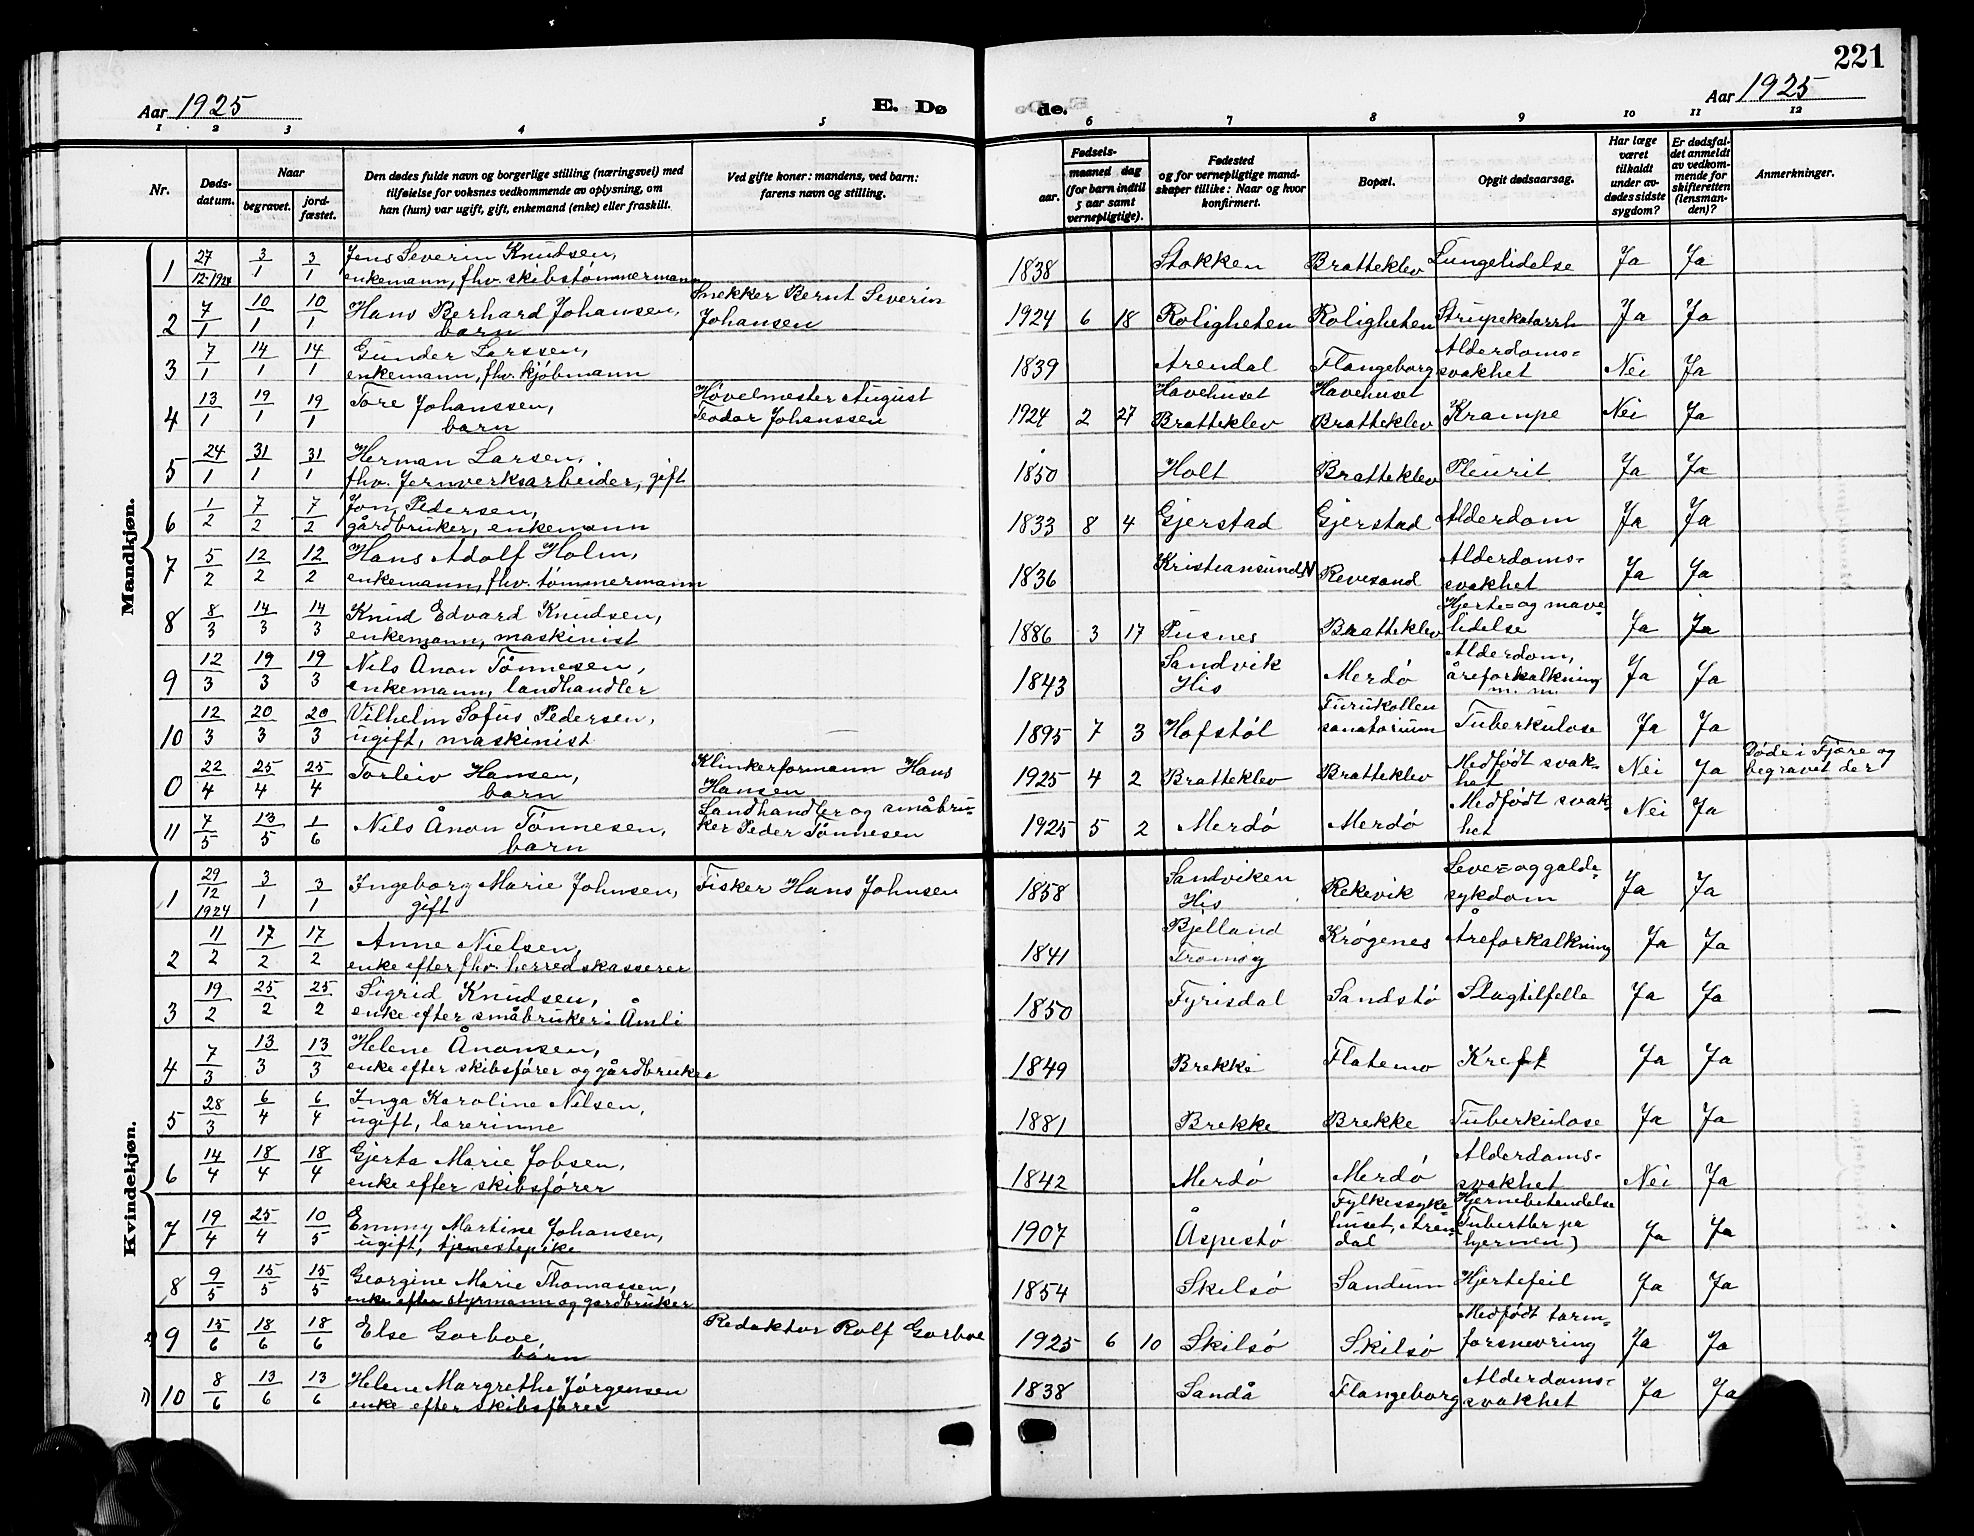 221
Aar 1925
E. Dø
de.
Aar 1925
1 2 3 4 5 6 7 8 9 10 11 12
Nr.
Døds-
datum.
Naar
begravet.
jord-
fæstet.
Den dødes fulde navn og borgerlige stilling (næringsvei) med
tilføielse for voksnes vedkommende av oplysning, om
han (hun) var ugift, gift, enkemand (enke) eller fraskilt.
Ved gifte koner: mandens, ved barn:
farens navn og stilling.
Fødsels-
aar.
maaned dag
(for barn indtil
5 aar samt
vernepligtige).
Fødested
og for vernepligtige mand-
skaper tillike: Naar og hvor
konfirmert.
Bopæl.
Opgit dødsaarsag.
Har læge
været
tilkaldt
under av-
dødes sidste
sygdom?
Er dødsfal-
det anmeldt
av vedkom-
mende for
skifteretten
(lensman-
den)?
Anmerkninger.
Mandkjøn.
1 27/12-1924 3/1 3/1 Jens Severin Knudsen, 1838 Stokken Bratteklev Lungelidelse Ja Ja
enkemann, fhv. skibstømmermann
2 7/1 10/1 10/1 Hans Berhard Johansen, Snekker Bernt Severin 1924 6 18 Roligheten Roligheten Strupekatarrh Ja Ja
barn Johansen
3 7/1 14/1 14/1 Gunder Larssen, 1839 Arendal Flangeborg Alderdoms= Nei Ja
enkemann, fhv. kjøbmann svakhet
4 13/1 19/1 19/1 Tore Johanssen, Høvelmester August 1924 2 27 Havehuset Havehuset Krampe Nei Ja
barn Teodor Johanssen Bratteklev Bratteklev
5 24/1 31/1 31/1 Herman Larsen, 1850 Holt Bratteklev Pleurit Ja Ja
fhv. Jernverksarbeider, gift
6 1/2 7/2 7/2 Jon Pedersen, 1833 8 4 Gjerstad Gjerstad Alderdom Ja Ja
gårdbruker, enkemann
7 5/2 12/2 12/2 Hans Adolf Holm, 1836 Kristiansund N Revesand Alderdoms= Ja Ja
enkemann, fhv. tømmermann svakhet
8 8/3 14/3 14/3 Knud Edvard Knudsen, 1886 3 17 Pusnes Bratteklev Hjerte= og mave= Ja Ja
enkemann, maskinist lidelse
9 12/3 19/3 19/3 Nils Anon Tønnesen, 1843 Sandvik Merdø Alderdom, Ja Ja
enkemann, landhandler His åreforkalkning
m. m.
10 12/3 20/3 20/3 Vilhelm Sofus Pedersen, 1895 7 3 Hofstøl Furukollen Tuberkulose Ja Ja
ugift, maskinist sanatorium
0 22/4 25/4 25/4 Torleiv Hansen, Klinkerformann Hans 1925 4 2 Bratteklev Bratteklev Medfødt svak= Nei Ja Døde i Fjære og
barn Hansen het begravet der
11 7/5 13/5 1/6 Nils Ånon Tønnesen, Landhandler og småbru= 1925 5 2 Merdø Merdø Medfødt svak= Nei Ja
barn ker Peder Tønnesen het
Kvindekjøn.
1 29/12 1924 3/1 3/1 Ingeborg Marie Johnsen, Fisker Hans Johnsen 1858 Sandviken Rekevik Lever= og galde= Ja Ja
gift His sykdom
2 11/2 17/2 17/2 Anne Nielsen, 1841 Bjelland Krøgenes Åreforkalkning Ja Ja
enke efter fhv. herredskasserer Tromøy
3 19/2 25/2 25/2 Sigrid Knudsen, 1850 Fyrisdal Sandstø Slagtilfelle Ja Ja
enke efter småbruker i Åmli
4 7/3 13/3 13/3 Helene Ånonsen, 1849 Brekke Flatemo Kreft Ja Ja
enke efter skibsfører og gårdbruker
5 28/3 6/4 6/4 Inga Karoline Nilsen, 1881 Brekke Brekke Tuberkulose Ja Ja
ugift, lærerinne
6 14/4 18/4 18/4 Gjerta Marie Jobsen, 1842 Merdø Merdø Alderdoms= Nei Ja
enke efter skibsfører svakhet
7 19/4 25/4 10/5 Emmy Martine Johansen, 1907 Åspestø Fylkessyke= Hjernebetendelse Ja Ja
ugift, tjenestepike huset, Aren= Tubertler på
dal hjernen)
8 9/5 15/5 15/5 Georgine Marie Thomassen, 1854 Skilsø Sandum Hjertefeil Ja Ja
enke efter styrmann og gårdbruker
9 15/6 18/6 18/6 Else Garboe, Redaktør Rolf Garboe 1925 6 10 Skilsø Skilsø Medfødt tarm= Ja Ja
barn forsnevring
10 8/6 13/6 13/6 Helene Margrethe Jørgensen 1838 Sandå Flangeborg Alderdoms= Ja Ja
enke efter skibsfører svakhet